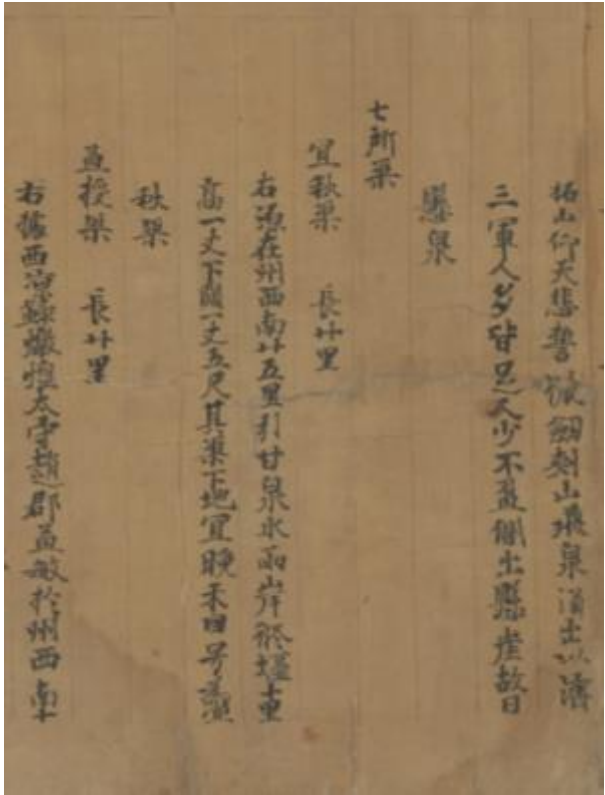 拓山仰天悲誓以佩劍刺山飛泉涌出以濟
三軍人多皆足人少不盈側出懸崖故曰
懸泉
七所渠
宜秋渠 長廿里
右源在州西南廿五里引甘泉水兩岸修堰十里
高一丈下闊一丈五尺其渠下地宜晚禾因号為宜
秋渠
孟授渠 長廿里
右據西涼錄燉煌太守趙郡孟敏於州西南十